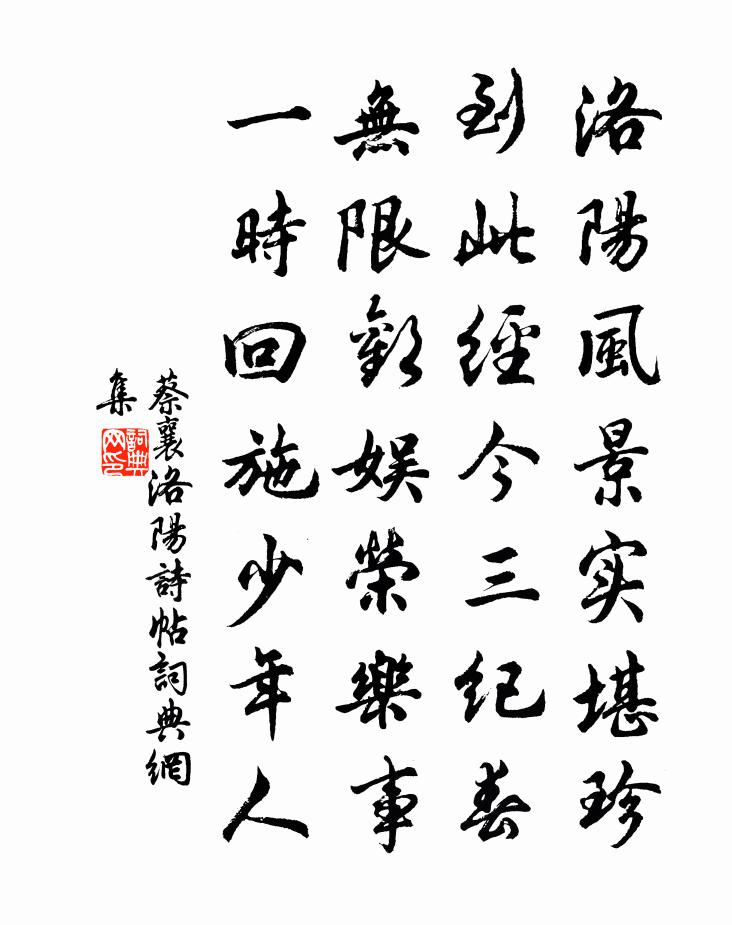 洛陽風景实堪珍
到此經今三紀春
無限歡娱榮樂事
一時回施少年人
蔡襄洛陽詩帖詞典網
集
詞典
网印